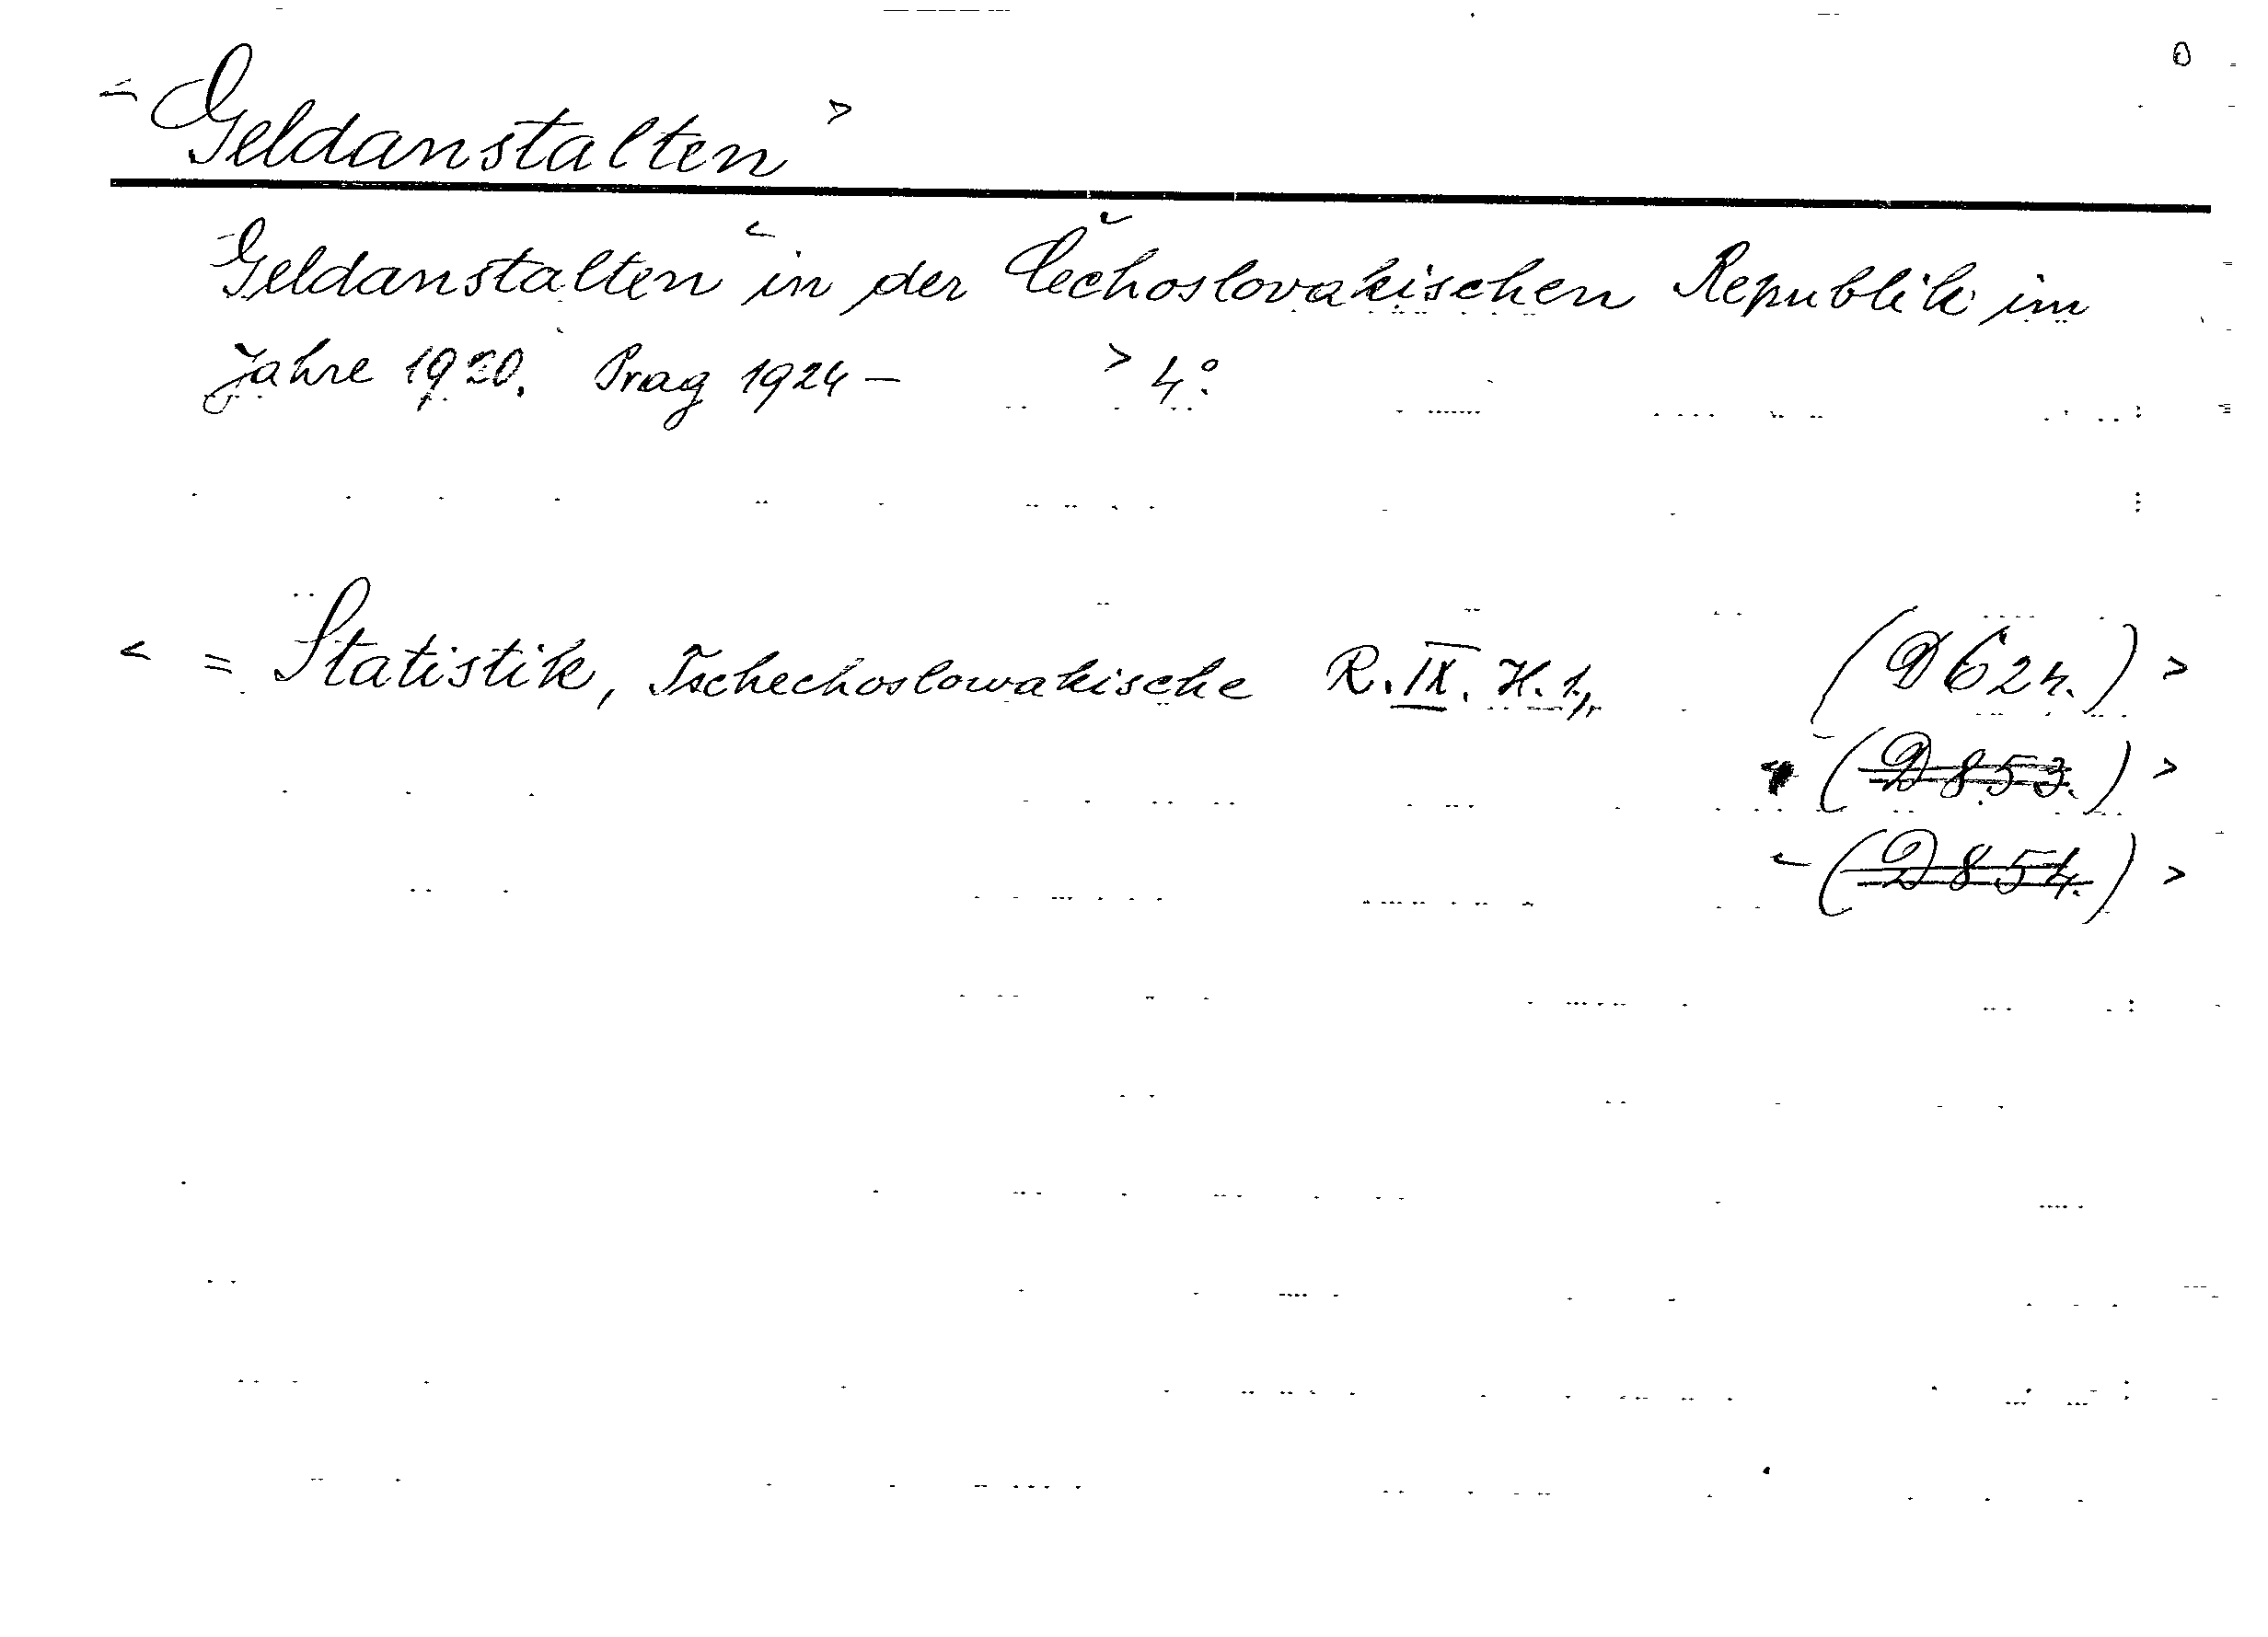 <Geldanstalten>
Geldanstalten <in der Čechoslovakischen Republik im
Jahre 1920. Prag 1924 — > 4°.
< = Statistik, Tschechoslowakische R. IX. H. 1,, (D 624.) >
<(D 853.) >
<(D 854.) >